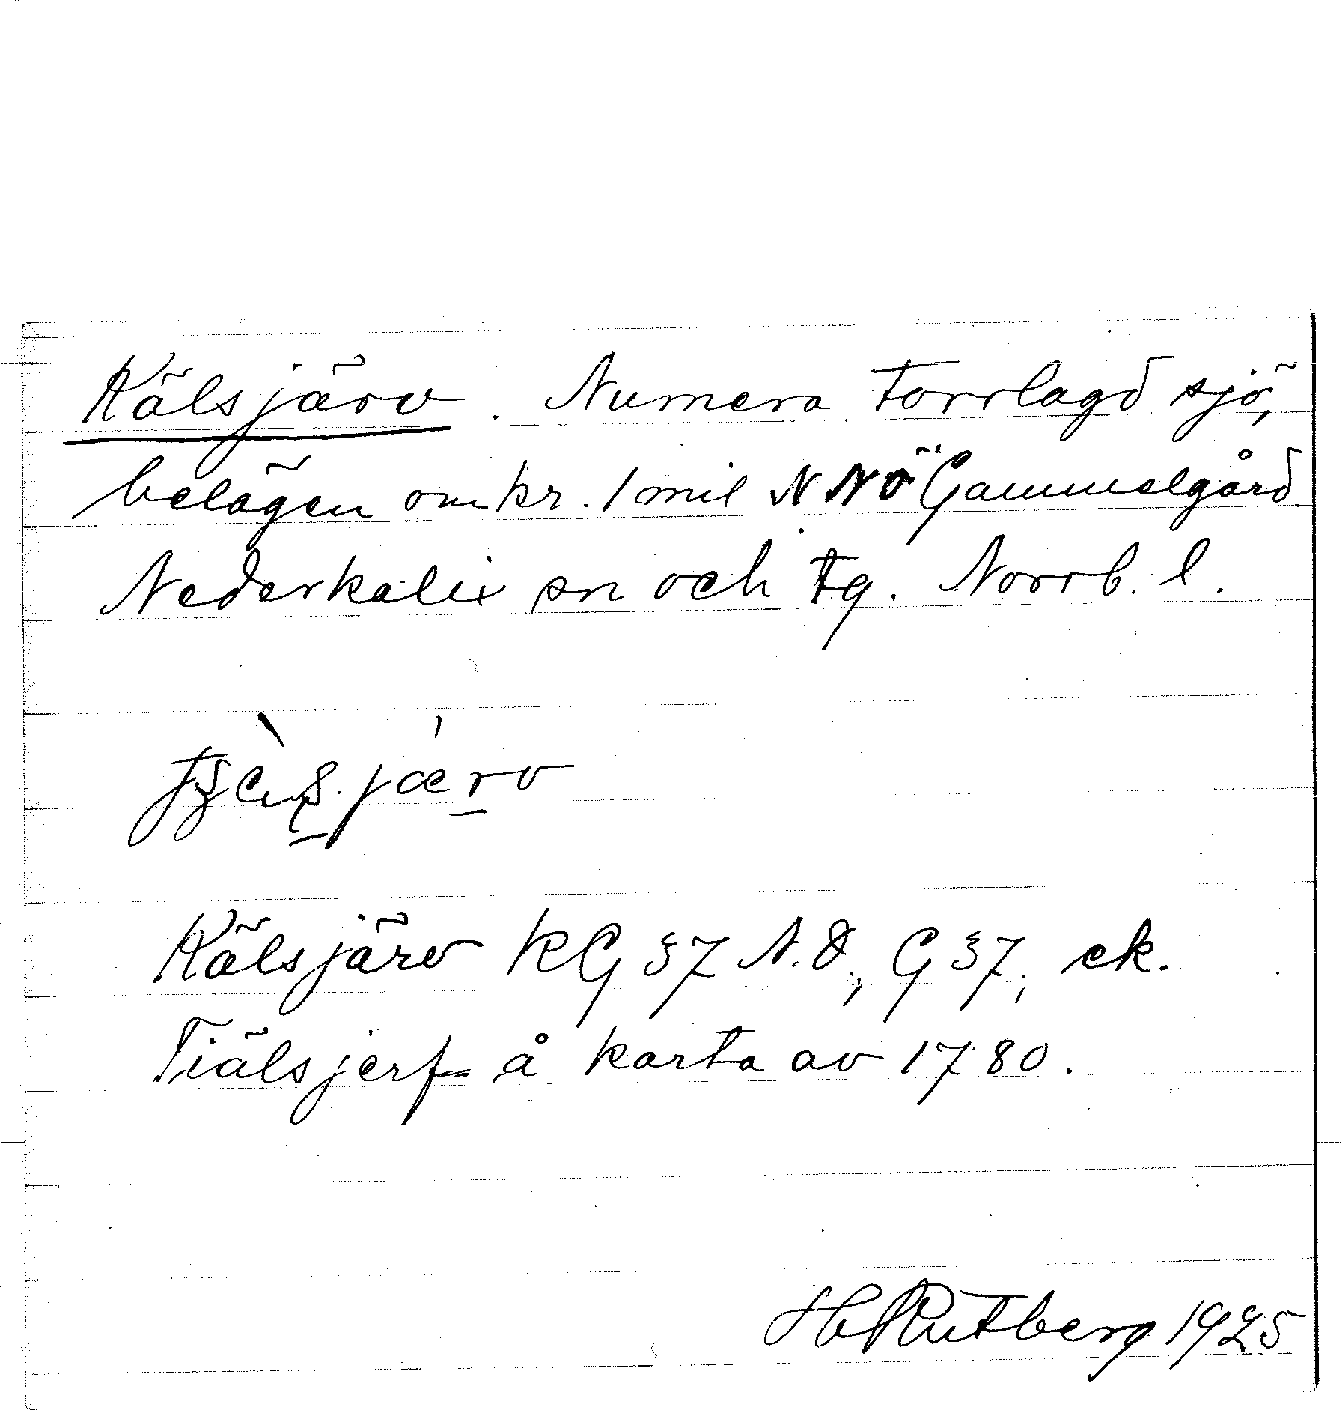 Kälsjärv. Numera torrlagd sjö,
belägen omkr. 1 mil NNÖ Gammelgård
Nederkalix sn och tg. Norrb. l.
Kälsjärv KG 37 N.D., G 37, ek.
Tiälsjerf å karta av 1780.
H Rutberg 1925